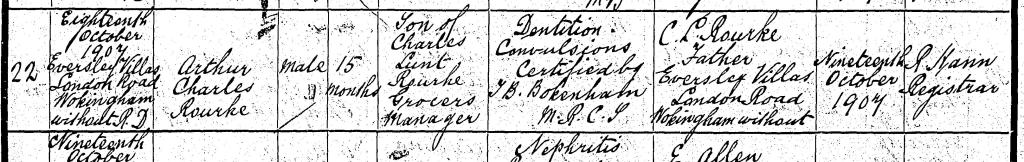 Eighteenth
October
1907
Eversley Villas
London Road
Wokingham
without R.D
22
Arthur
Charles
Rourke
Male
15
months
Son of
Charles
Lint
Rourke
Grocers
Manager
Dentition
Convulsions
Certified by
J B. Bokenham
M.R.C.S
C. L. Rourke
Father
Eversley Villas
London Road
Wokingham without
Nineteenth
October
1907
R Hann
Registrar
Nineteenth
October
Nephritis
E Allen